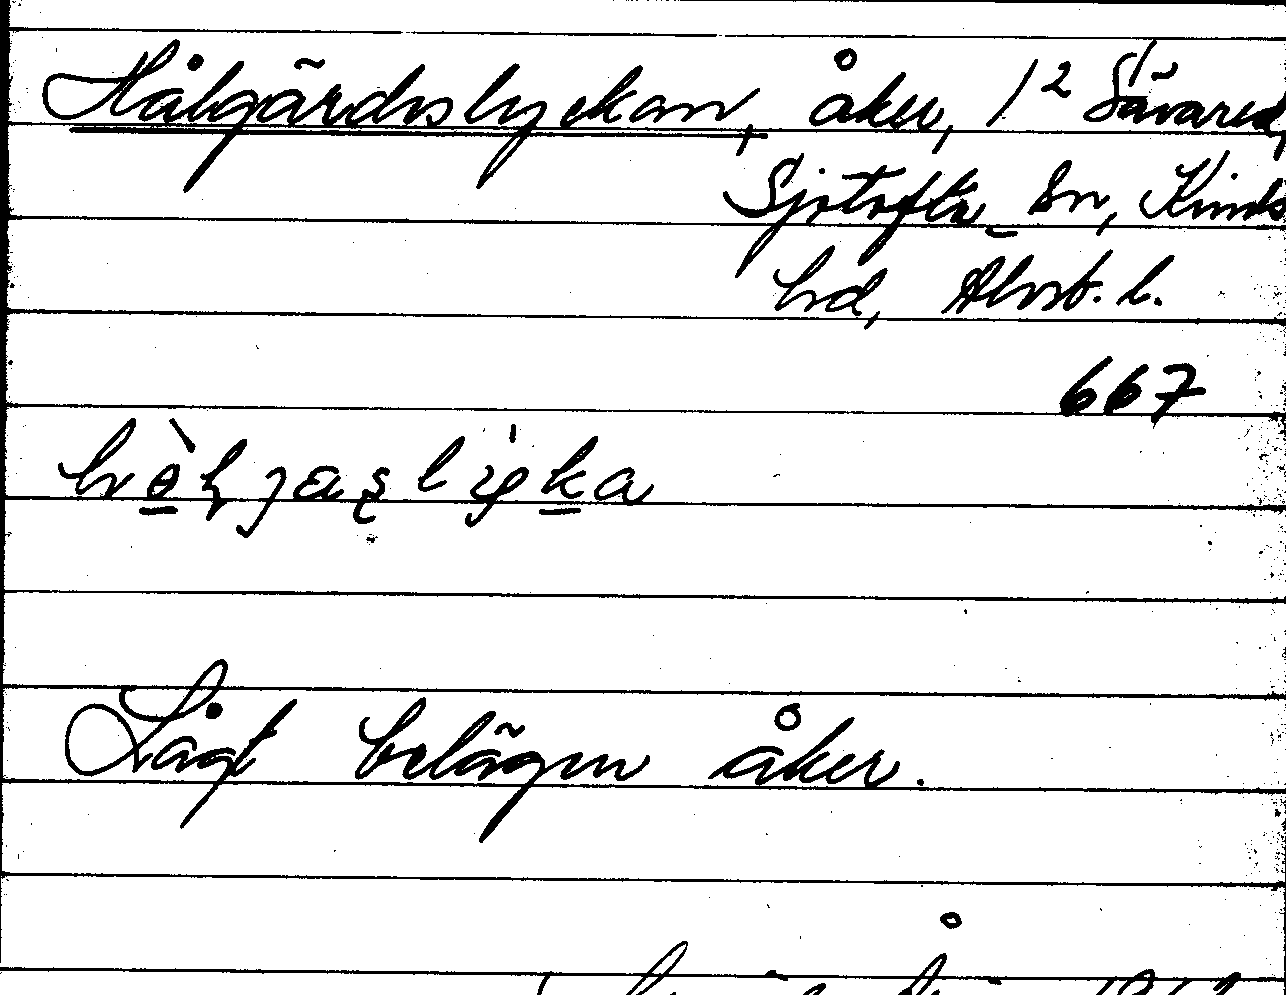 Hålgärdslyckan, åker, 1² Sävared,
Sjötofta sn, Kinds
hd, Älvsb. l.
667
Lågt belägen åker.